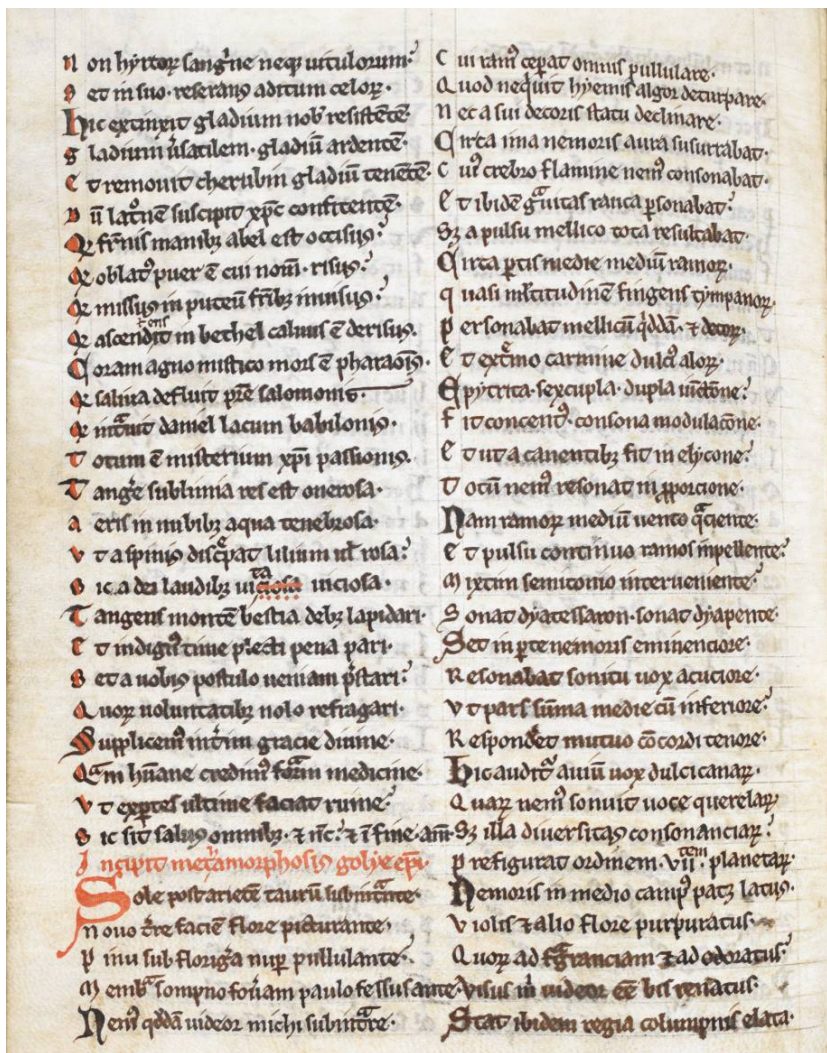 Non hyrcoꝝ sang̾ne neqꝫ uitulorum᛫
Set in suo᛫ reserans aditum celoꝝ᛫
Hic extinxit gladium nob̾ resistētē᛫
Gladium ũsatilem᛫ gladiū ardentē᛫
Et remouit cherubin gladiū tenētē᛫
suscipit xp̄c confitentē᛫
fr̄nis manibꝫ abel est occisus᛫
oblatꝰ puer ē cui nom̄᛫ risus᛫
missus in puteū fr̄ibꝫ inuisus᛫
ascendens in bethel caluus ē derisus᛫
Coram agno mistico mors ē pharaoīs᛫
saliua defluit p̄re salomonis᛫
daniel lacum babilonis᛫
Totum ē misterium xp̄i passionis᛫
Tang̾e sublimia res est onerosa᛫
Aeris in nubibꝫ aqua tenebrosa᛫
Vt a spinis disc̾pat lilium ul̄ rosa᛫
Sic a dei laudibꝫ uita uiciosa᛫
Tangens montē bestia debꝫ lapidari᛫
Et indignū me plecti pena pari᛫
Set a uobis postulo ueniam p̄stari᛫
Quoꝝ uoluntatibꝫ nolo refragari᛫
Supplicemꝰ int̾im gracie diuine᛫
Qᵃm hūane credimꝰ for̄m medicine᛫
Vt exp̱tes ultime faciat ruine᛫
Sic sit salus omnibꝫ᛫ ⁊ nc̄᛫ ⁊ ī fine᛫ am̄᛫
Incipit met̾amorphosis golye ep̄i᛫
Sole post arietē taurū subint̾nte᛫
Et nouo t̾re faciē flore picturante᛫
Pinu sub florig̾a nup̱ pullulante᛫
Memb̾ sompno fou̾am paulo fessus ante᛫
Nemꝰ qͦddā uideor michi subint̾re᛫
Cui ramꝰ cep̱at omnis pullulare᛫
Quod nequit hyemis algor deturpare᛫
Nec a sui decoris statu declinare᛫
Circa ima nemoris aura susurrabat᛫
Cuiꝰ crebro flamine nemꝰ consonabat᛫
Et ibidē gᵃuitas rauca p̱sonabat᛫
Sꝫ a pulsu mellico tota resultabat᛫
Circa p̱tis medie mediū ramoꝝ᛫
Quasi ml̄titudinē fingens tympanoꝝ᛫
Personabat mellicū qͥddā᛫ ⁊ decoꝝ᛫
Et ext̾mo carmine dulciꝰ aloꝝ᛫
Epytrita᛫ sexcupla᛫ dupla iūctōne᛫
Fit concentꝰ᛫ consona modulacōne᛫
Et ut a canentibꝫ fit in elycone᛫
Totū nemꝰ resonat in ꝓporcione᛫
Nam ramoꝝ mediū uento qᵃciente᛫
Et pulsu continuo ramos inpellente᛫
Mixtim semitonio interueniente᛫
Sonat dyatessaron᛫ sonat dyapente᛫
Set in p̱te nemoris eminenciore᛫
Resonabat sonitu uox acuciore᛫
Vt pars sūma medie cū inferiore᛫
Respondet mutuo cōcordi tenore᛫
Hic auditꝰ auiū uox dulcicanaꝝ᛫
Quaꝝ nemꝰ sonuit uoce querelaꝝ᛫
Sꝫ illa diuersitas consonanciaꝝ᛫
Prefigurat ordinem᛫ vii.tem planetaꝝ᛫
Nemoris in medio campꝰ patꝫ latus᛫
Violis ⁊ alio flore purpuratus᛫
Quoꝝ ad fᵃgranciam ⁊ ad odoratus᛫
Visus m̄ uideor ēē bis renatus᛫
Stat ibidem regia columpnis elata᛫